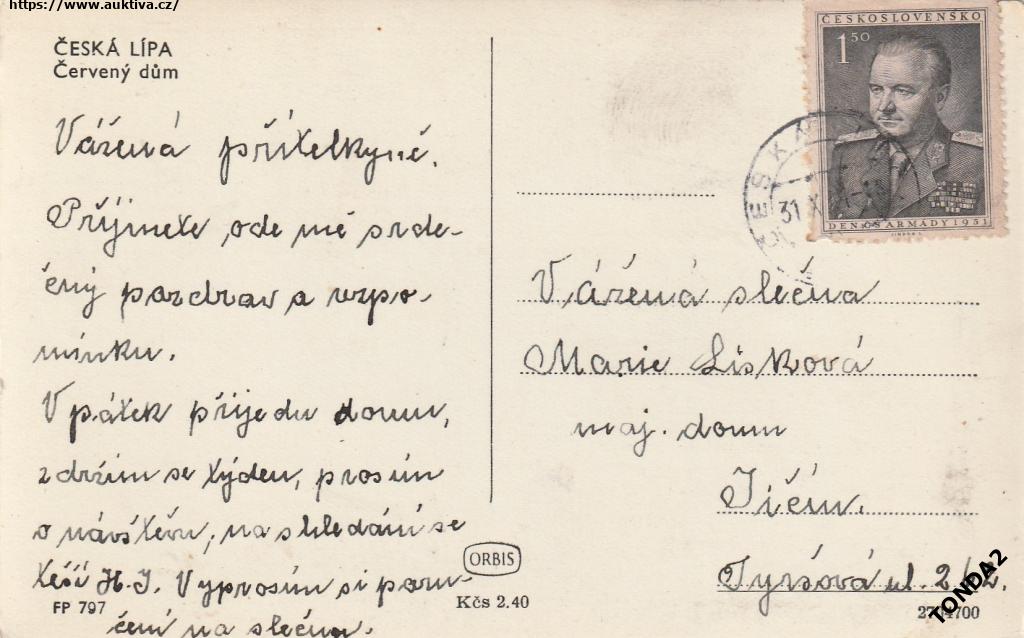 https://www.auktiva.cz/
ČESKÁ LÍPA
Červený dům
Vážená přítelkyně.
Přijmete ode mě srde-
čný pozdrav a vzpo-
mínku.
V pátek přijedu domu,
zdržím se týden, prosím
o návštěvu, na shledání se
těší H. J. Vyprosím si poru-
čení na slečnu.
FP 797
ORBIS
Kčs 2.40
ČESKOSLOVENSKO
1 50
DEN ČS ARMÁDY 1951
ČESKÁ
31 X
Vážená slečna
Marie Lisková
maj. domu
Jičín.
Tyršová ul. 2/2.
27 14700
TONDA2